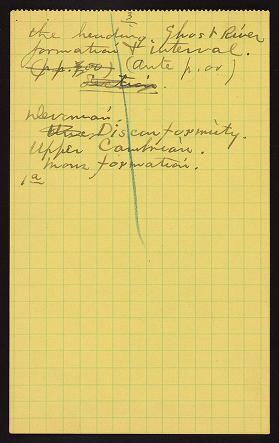 3
the heading, Ghost River
formation & interval.
(pp. 00) (Ante p. 00)
Section.
Devonian.
Disconformity.
Upper Cambrian.
Mons formation.
1a